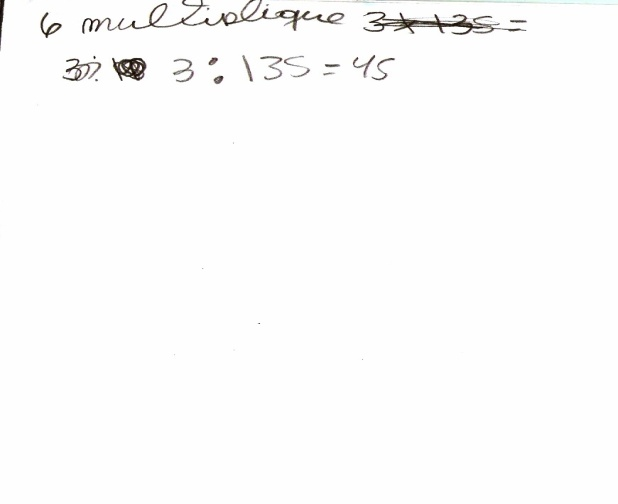 6 multiplique 3x135=
3 : 135 = 45